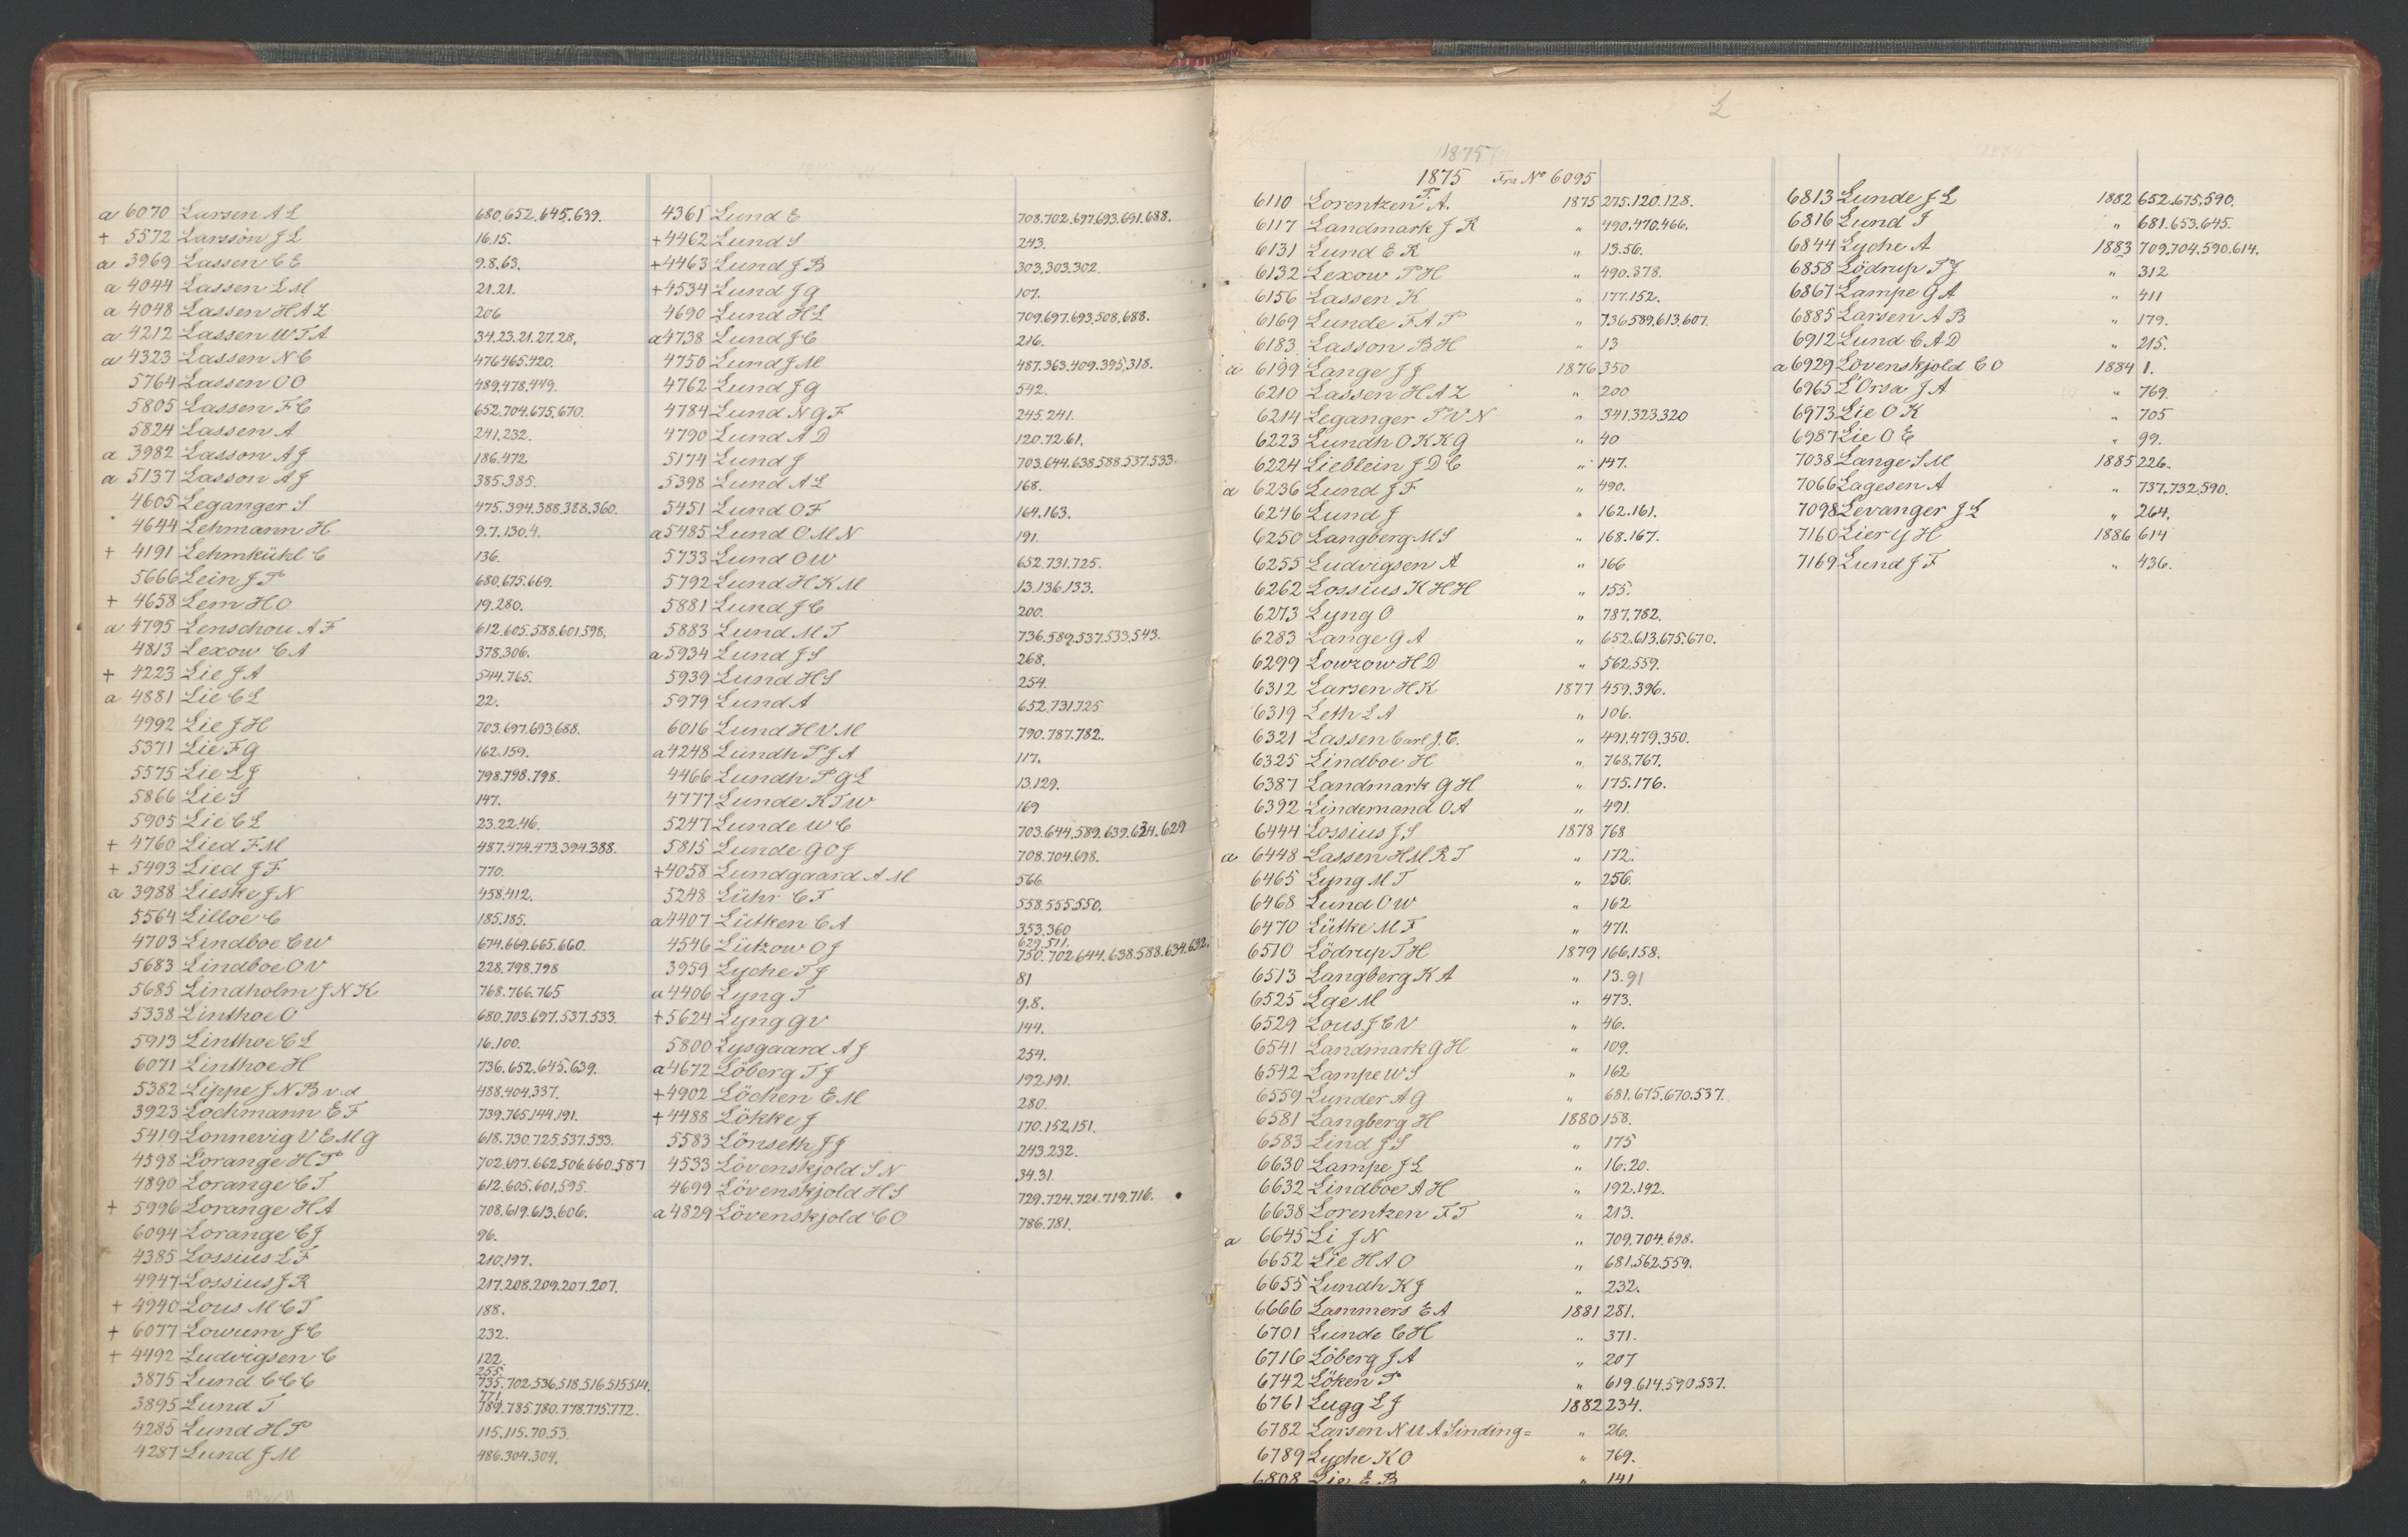 a 6070 Larsen A L 680.652.645.639.
+ 5572 Larssön J L 16.15.
a 3969 Lassen C E 9.8.63.
a 4044 Lassen L M 21.21.
a 4048 Lassen H A Z 206
a 4212 Lassen W T A 34.23.21.27.28.
a 4323 Lassen N C 476.465.420.
5764 Lassen O O 489.478.449.
5805 Lassen F C 652.704.675.670.
5824 Lassen A 241.232.
a 3982 Lasson A J 186.472
a 5137 Lasson A J 385.385.
4605 Leganger S 475.394.388.388.360.
4644 Lehmann H 9.7.130.4.
+ 4191 Lehmkühl C 136.
5666 Lein J P 680.675.669.
+ 4658 Lem H O 19.280.
a 4795 Lenschou A F 612.605.588.601.598.
4813 Lexow C A 378.306.
+ 4223 Lie J A 544.765.
a 4881 Lie C L 22.
4992 Lie J H 703.697.693.688.
5371 Lie F G 162.159.
5575 Lie L J 798.798.798.
5866 Lie S 147.
5905 Lie C L 23.22.46.
+ 4760 Lied F M 487.474.473.394.388.
+ 5493 Lied J F 770.
a 3988 Lieske J N 458.412.
5564 Lilloe C 185.185.
4703 Lindboe C W 674.669.665.660.
5683 Lindboe O V 228.798.798
5685 Lindholm J N K 768.766.765
5338 Linthoe O 680.703.697.537.533.
5913 Linthoe C L 16.100.
6071 Linthoe H 736.652.645.639.
5382 Lippe J N B v.d 488.404.337.
3923 Lochmann E F 739.765.144.191.
5419 Lonnevig V E M G 618.730.725.537.533.
4598 Lorange H P 702.697.662.506.660.587
4890 Lorange C T 612.605.601.595.
+ 5996 Lorange H A 708.619.613.606.
6094 Lorange C J 96.
4385 Lossius L F 210.197.
4947 Lossius J R 217.208.209.207.207.
+ 4940 Lous M C T 188.
+ 6077 Lowum J C 232.
+ 4492 Ludvigsen C 122.
255.
3875 Lund C C C 735.702.536.518.516.515.514.
771.
3895 Lund T 789.785.780.778.775.772.
4285 Lund H P 115.115.70.53.
4287 Lund J M 486.304.304.
4361 Lund E 708.702.697.693.691.688.
+ 4462 Lund S 243.
+ 4463 Lund J B 303.303.302.
+ 4534 Lund J G 107.
4690 Lund H L 709.697.693.508.688.
a 4738 Lund J C 216.
4750 Lund J M 487.363.409.395.318.
4762 Lund J G 542.
4784 Lund N G F 245.241.
4790 Lund A D 120.72.61.
5174 Lund J 703.644.638.588.537.533.
5398 Lund A L 168.
5451 Lund O F 164.163.
a 5485 Lund O M N 191.
5733 Lund O W 652.731.725.
5792 Lund H K M 13.136.133.
5881 Lund J C 200.
5883 Lund M T 736.589.537.533.543.
a 5934 Lund J S 268.
5939 Lund H S 254.
5979 Lund A 652.731.725
6016 Lund H V M 790.787.782.
a 4248 Lundh P J A 117.
4466 Lundh P G L 13.129.
4777 Lunde K T W 169
5247 Lunde W C 703.644.589.639.634.629
5815 Lunde G O J 708.704.698.
+ 4058 Lundgaard A M 566.
5248 Lühr C F 558.555.550.
a 4407 Lütken C A 353.360
629.511.
4546 Lützow O J 750.702.644.638.588.634.632.
3959 Lyche T J 81
a 4406 Lyng T 9.8.
+ 5624 Lyng G V 144.
5800 Lysgaard A J 254.
a 4672 Löberg T J 192.191.
+ 4902 Löchen E M 280.
+ 4488 Lökke J 170.152.151.
5583 Lönseth J J 243.232.
4533 Lövenskjold S N 34.31.
4699 Lövenskjold H S 729.724.721.719.716.
a 4829 Lövenskjold C O 786.781.
L
1875
1875 Fra No 6095
6110 Lorentzen T. A. 1875 275.120.128.
6117 Landmark J R " 490.470.466.
6131 Lund E R " 13.56.
6132 Lexow P H " 490.378.
6156 Lassen K " 177.152.
6169 Lunde F A P " 736.589.613.607.
6183 Lasson B H " 13
a 6199 Lange J J 1876 350
6210 Lassen H A Z " 200
6214 Leganger P V N " 341.323.320
6223 Lundh O K K G " 40
6224 Lieblein J D C " 147.
a 6236 Lund J F " 490.
6246 Lund J " 162.161.
6250 Langberg M S " 168.167.
6255 Ludvigsen A " 166
6262 Lossius K H H " 155.
6273 Lyng O " 787.782.
6283 Lange G A " 652.613.675.670.
6299 Lowzow H D " 562.559.
6312 Larsen H K 1877 459.396.
6319 Leth L A " 106.
6321 Lassen Carl J. C. " 491.479.350.
6325 Lindboe H " 768.767.
6387 Landmark G H " 175.176.
6392 Lindemand O A " 491.
6444 Lossius J S 1878 768
a 6448 Lassen H M R T " 172.
6465 Lyng M T " 256.
6468 Lund O W " 162
6470 Lütke M F " 471.
6510 Lödrup T H 1879 166.158.
6513 Langberg K A " 13.91
6525 Lae M " 473.
6529 Lous J C V " 46.
6541 Landmark G H " 109.
6542 Lampe W S " 162
6559 Lunder A G " 681.675.670.537.
6581 Langberg H 1880 158.
6583 Lind J S " 175
6630 Lampe J L " 16.20.
6632 Lindboe A H " 192.192.
6638 Lorentzen F T " 213.
a 6645 Li J N " 709.704.698.
6652 Lie H A O " 681.562.559.
6655 Lundh K J " 232.
6666 Lammers E A 1881 281.
6701 Lunde C H " 371.
6716 Löberg J A " 207
6742 Löken P " 619.614.590.537.
6761 Lugg L J 1882 234.
6782 Larsen N U A Sinding= " 26.
6789 Lyche K O " 769.
6808 Lie E B " 141
6813 Lunde J L 1882 652.675.590.
6816 Lund I " 681.653.645.
6844 Lyche A 1883 709.704.590.614.
6858 Lödrup P J " 312
6867 Lampe G A " 411
6885 Larsen A B " 179.
6912 Lund C A D " 215.
a 6929 Lövenskjold C O 1884 1.
6965 L'Orsa J A " 769.
6973 Lie O K " 705
6987 Lie O E " 99.
7038 Lange S M 1885 226.
7066 Lagesen A " 737.732.590.
7098 Levanger J L " 264.
7160 Lier y H 1886 614
7169 Lund J F " 436.